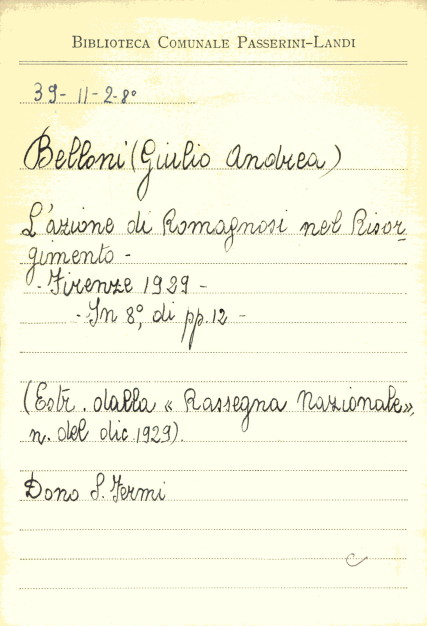 BIBLIOTECA COMUNALE PASSERINI-LANDI
39- 11-2-8°
Belloni (Giulio Andrea)
L'azione di Romagnosi nel Risor-
gimento -
- Firenze 1929 -
- In 8°, di pp. 12 -
(Estr. dalla « Rassegna Nazionale»,
n. del dic. 1929).
Dono S. Fermi
c